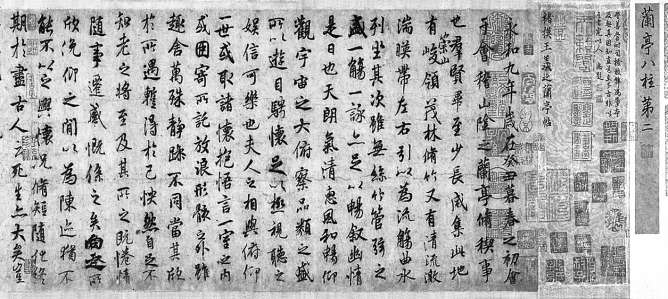 蘭亭八柱第二
褚模王羲之蘭亭帖
永和九年歲在癸丑暮春之初會
于會稽山陰之蘭亭脩稧事
也群賢畢至少長咸集此地
有崇山峻領茂林脩竹又有清流激
湍暎帶左右引以為流觴曲水
列坐其次雖無絲竹管弦之
盛一觴一詠亦足以暢敘幽情
是日也天朗氣清惠風和暢仰
觀宇宙之大俯察品類之盛
所以遊目騁懷足以極視聽之
娛信可樂也夫人之相與俯仰
一世或取諸懷抱悟言一室之內
或因寄所託放浪形骸之外雖
趣舍萬殊靜躁不同當其欣
於所遇暫得於己怏然自足不
知老之將至及其所之既惓情
隨事遷感慨係之矣向之所
欣俛仰之間以為陳迹猶不
能不以之興懷況脩短隨化終
期於盡古人云死生亦大矣豈